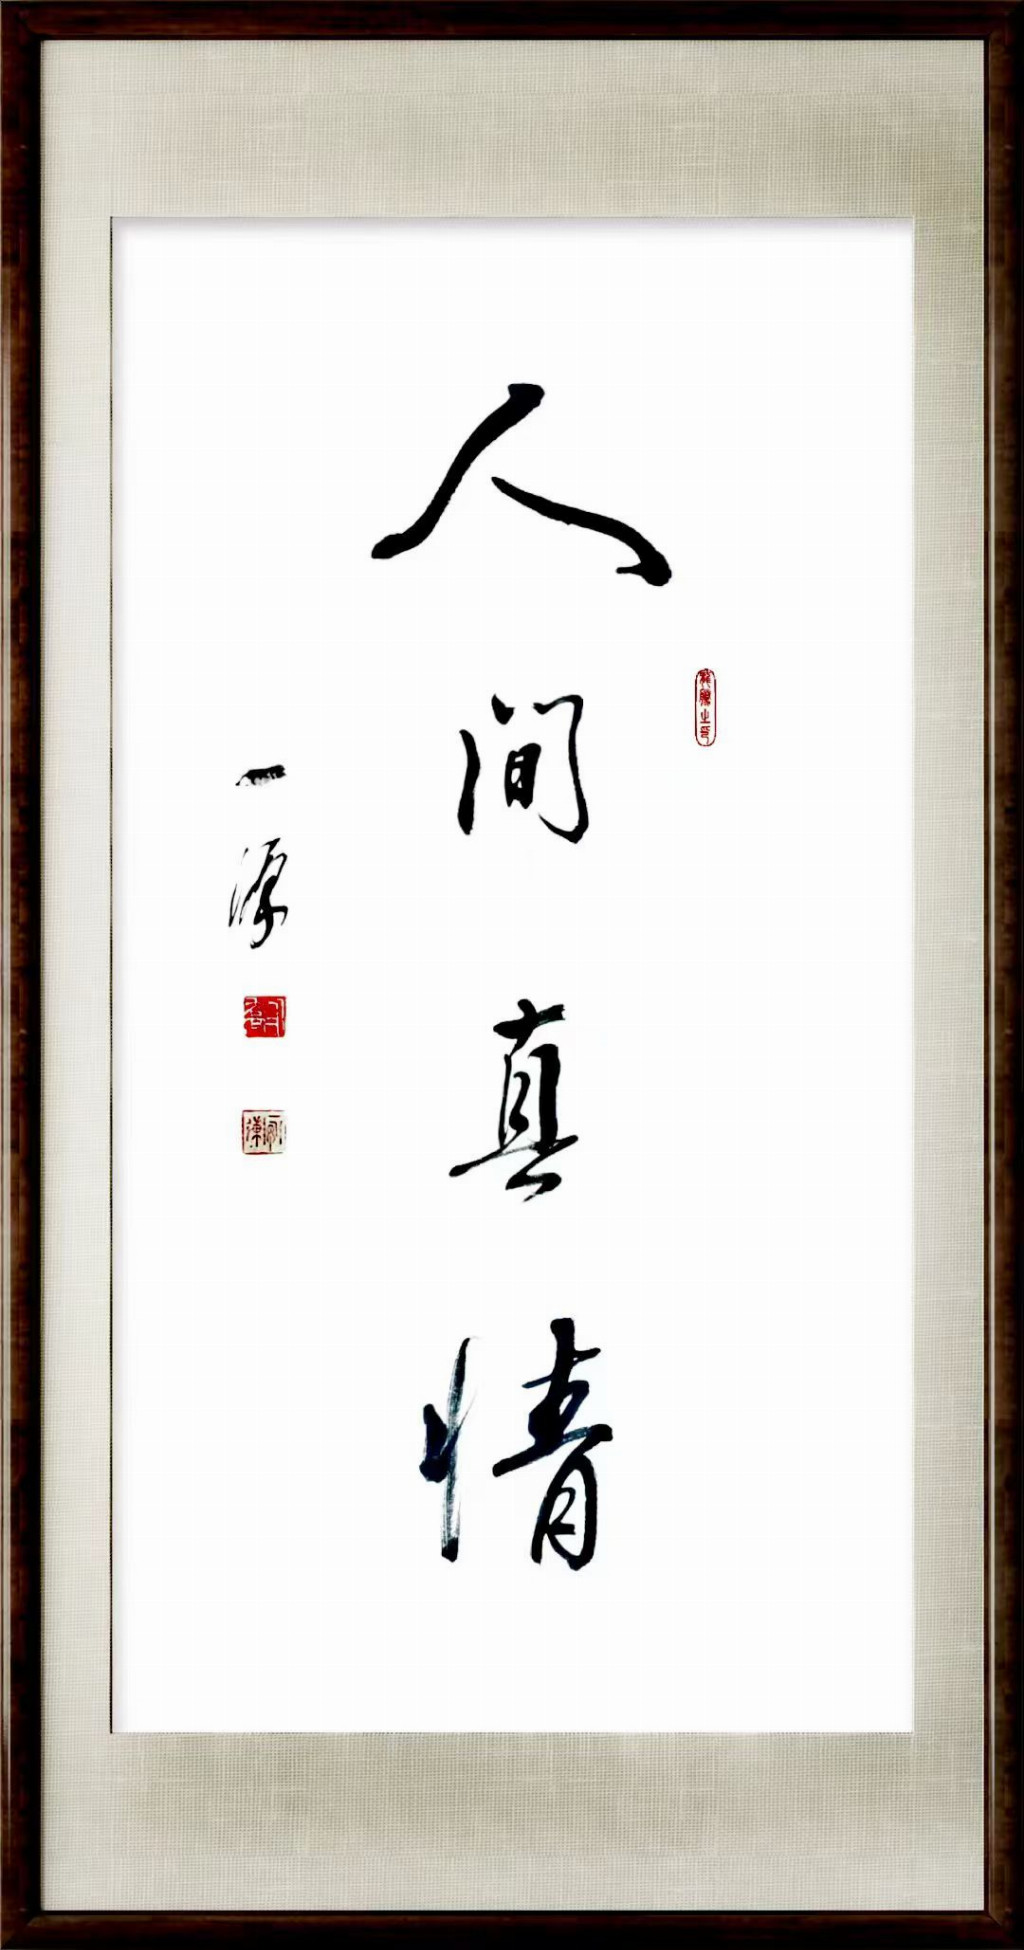 人间真情
一源